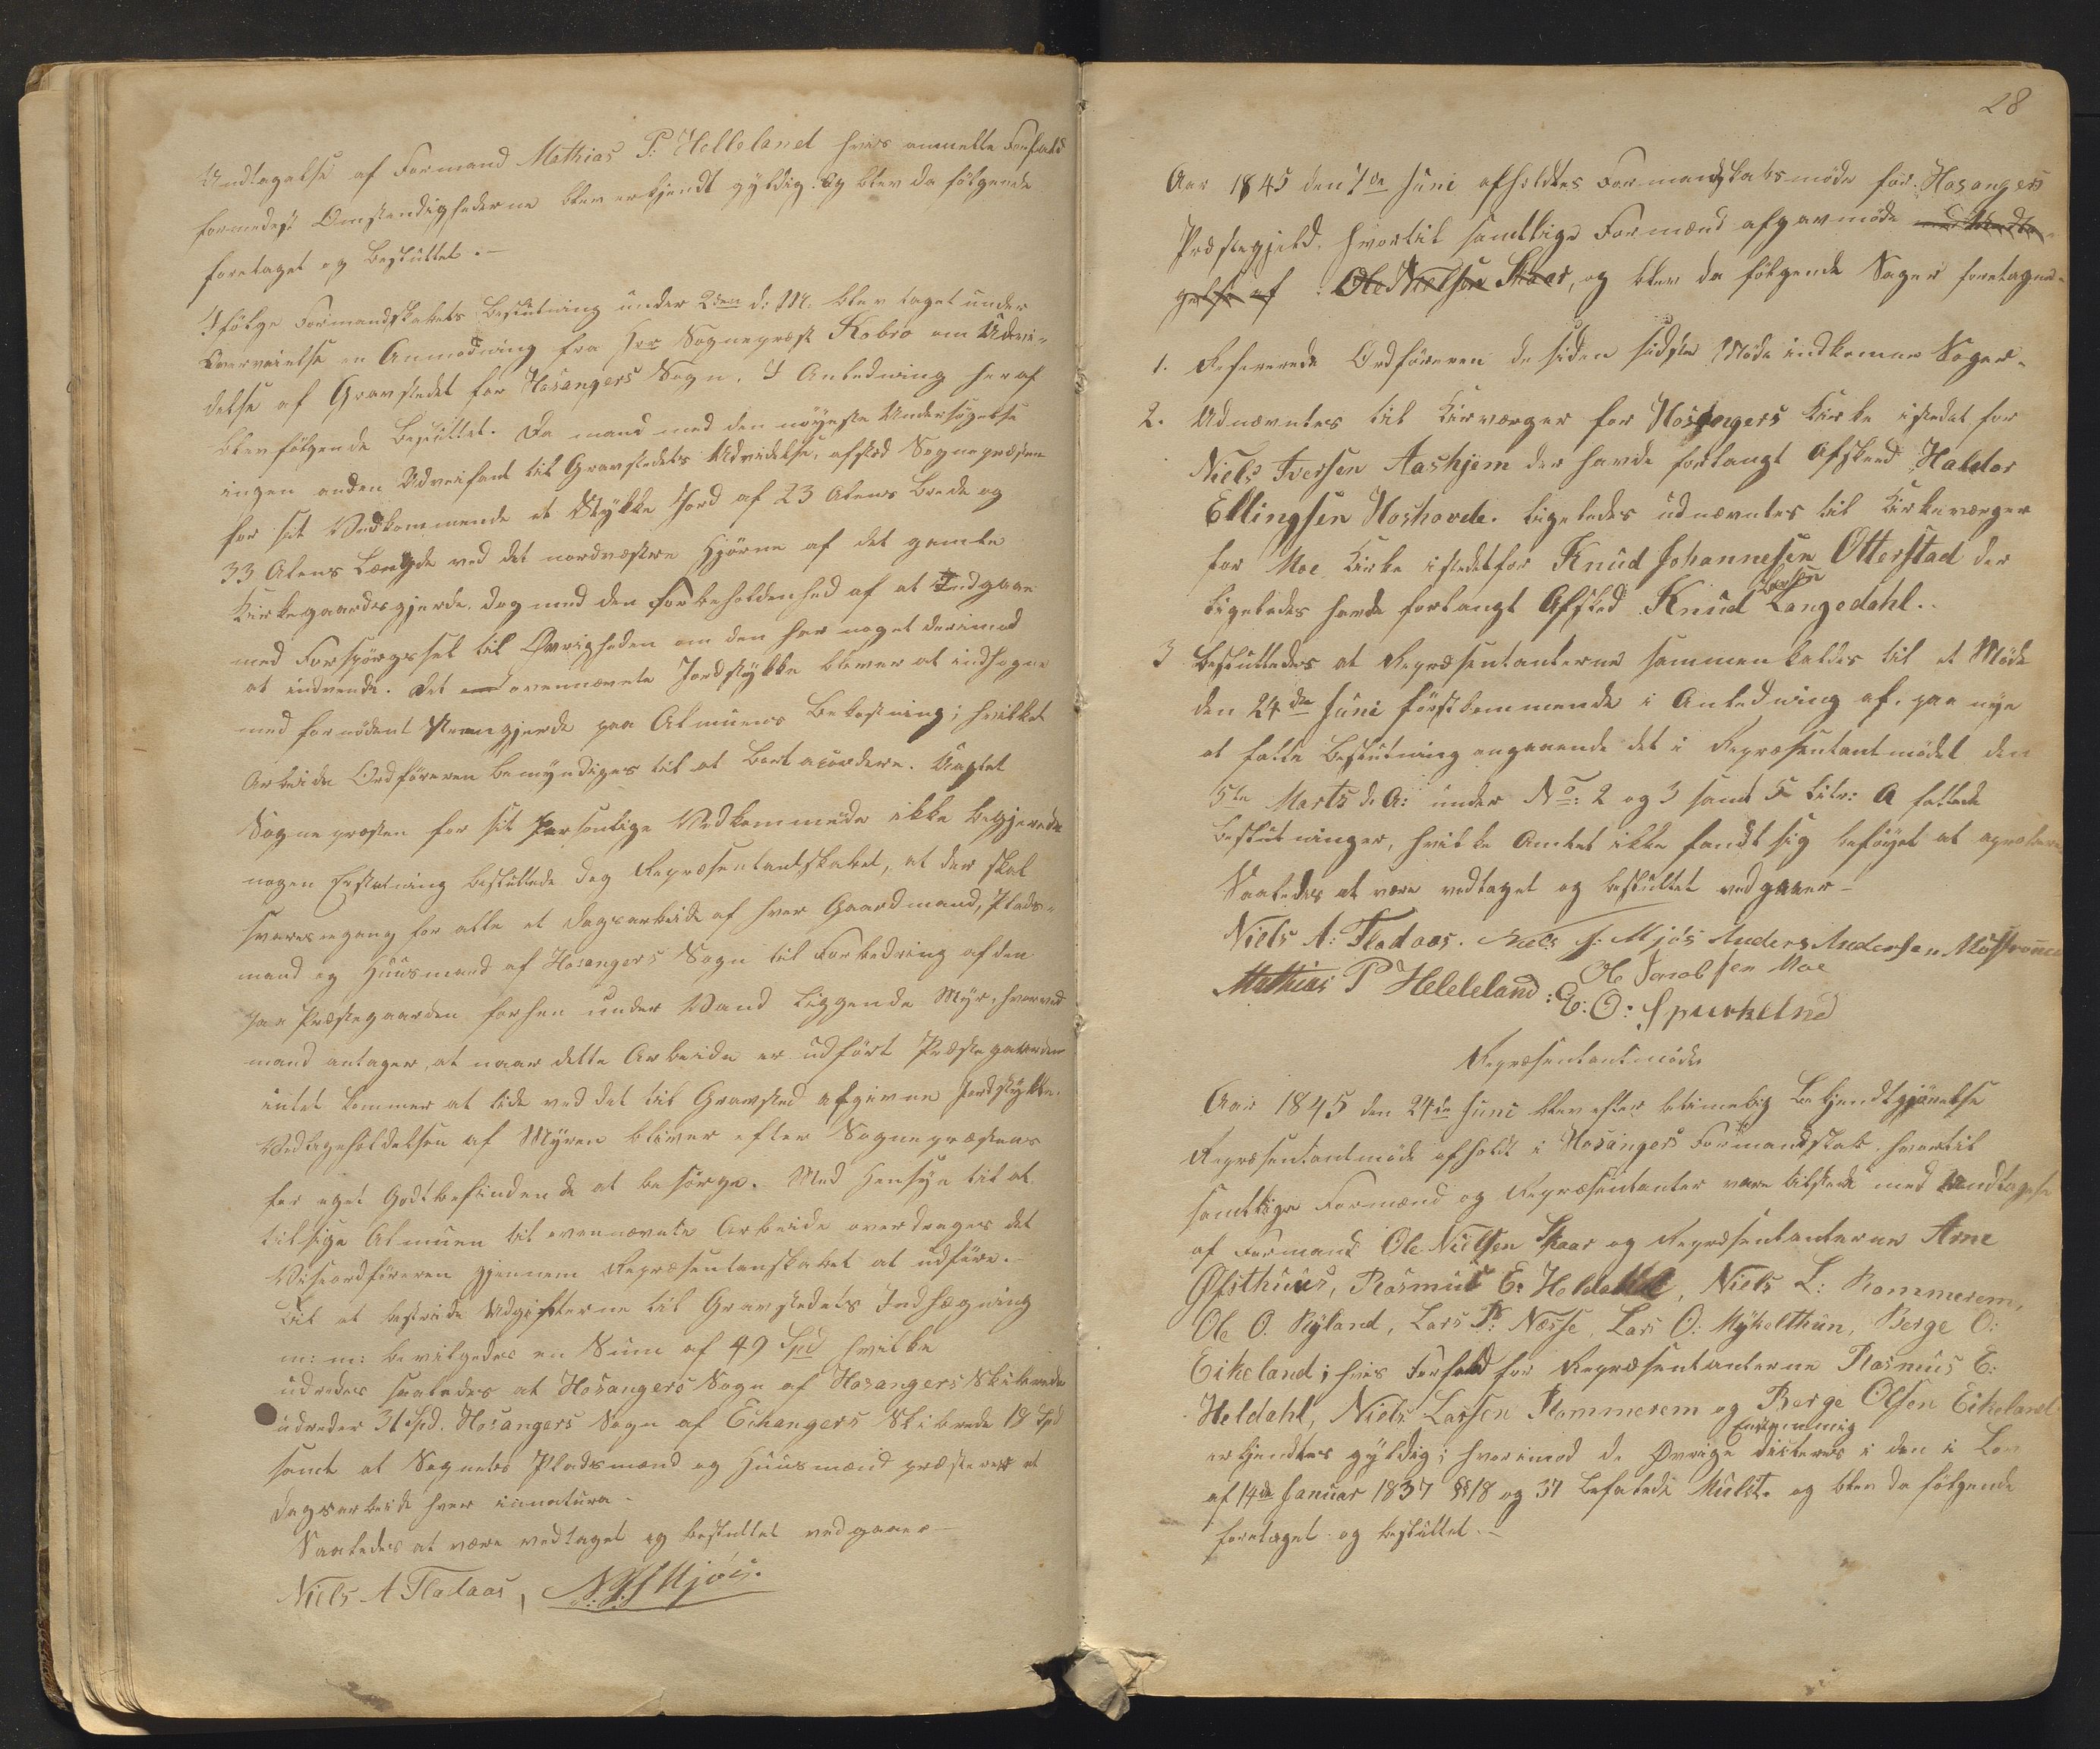 Undtagelse af Formand Mathias P. Helleland hvis anmelte Forfald
formedelst Omstændighederne blev erkjendt gyldig. Og blev da følgende
foretaget og besluttet. —
Ifølge Formandskabets Beslutning under 2den d: M. blev taget under
Overveielse en Anmodning fra Hrr Sognepræst Kobro om Udvi-
delse af Gravstedet for Hosangers Sogn. I Anledning heraf
blev følgende besluttet. Da mand med den nøyeste Undersøgelse
ingen anden Udvei fant til Gravstedets Udvidelse, afstod Sognepræsten
for sit Vedkommende et Stykke Jord af 23 Alens Brede og
33 Alens Længde ved det nordvestre Hjørne af det gamle
Kirkegaardsgjerde, dog med den Forbeholdenhed af at Indgaae
med Forspørgssel til Øvrigheden om den har noget derimod
at indvende. Det ovennævnte Jordstykke bliver at indhegne
med fornødent Steengjerde paa Almuens Bekostning; hvilket
Arbeide Ordføreren bemyndiges til at bortacordere. Uagtet
Sognepræsten for sit personlige Vedkommende ikke begjerede
nogen Erstatning besluttede dog Repræsentantskabet, at der skal
svares engang for alle et Dagsarbeide af hver Gaardmand, Plads-
mand og Huusmand af Hosangers Sogn til Forbedring af den
paa Præstegaarden forhen under Vand liggende Myr, hvorved
mand antager, at naar dette Arbeide er udført Præstegaarden
intet kommer at lide ved det til Gravsted afgivne Jordstykke.
Vedligeholdelsen af Myren bliver efter Sognepræstens
eget Godtbefindende at besørge. Med Hensyn til at
tilsige Almuen til ovennævnte Arbeide overdrages det
Viseordføreren gjennem Repræsentanskabet at udføre. —
Til at bestride Udgifterne til Gravstedets Indhægning
m: m: bevilgedes en Sum af 49 Spd hvilke
udredes saaledes at Hosangers Sogn af Hosangers Skibrede
udreder 31 Spd. Hosangers Sogn af Echangers Skibrede 18 Spd
samt at Sognets Pladsmænd og Huusmænd præsterer et
Dagsarbeide hver innatura —
Saaledes at være vedtaget og besluttet vedgaaes —
Niels A Fladaas, N. J. Mjös.
28
Aar 1845 den 7de Juni afholdtes Formandskabsmøde for Hosangers
Præstegjeld, hvortil samtlige Formænd afgav møde med Undta-
gelse af Ole Nielsen Skaar, og blev da følgende Sager foretagne.
1. Refererede Ordføreren de siden sidste Møde indkomne Sager.
2. Udnævntes til Kirværger for Hosangers Kirke istedet for
Niels Iversen Aashjem der havde forlangt Afskeed Haldor
Ellingsen Hoshovde. Ligeledes udnævntes til Kirkeværger
for Moe Kirke istedetfor Knud Johannesen Otterstad der
ligeledes havde forlangt Afsked Knud Larsen Langedahl..
3 Besluttedes at Repræsentanterne sammenkaldes til et Møde
den 24de Juni førstkommende i Anledning af, paa nye
at fatte Beslutning angaaende det i Repræsentantmødet den
5te Marts d. A: under No: 2 og 3 samt 5 Litr: A fattede
Beslutninger, hvilke Amtet ikke fandt sig beføyet at aprobere
Saaledes at være vedtaget og besluttet vedgaaes —
Niels A: Fladaas. Niels J: Mjös Anders Andersen Mostrømen
Ole Jacobsen Moe
Mathias P Heleleland: E: O: Spurkelnd
Repræsentantmøde
Aar 1845 den 24de Juni blev efter betimelig Bekjendtgjørelse
Repræsentantmøde afholdt i Hosangers Formandskab, hvortil
samtlige Formænd og Repræsentanter vare tilstede med Undtagelse
af Formand Ole Nielsen Skaar og Repræsentanterne Arne
Øfsthuus, Rasmus E. Heldahl, Niels L: Rommerem,
Ole O. Ryland, Lars P: Næsse, Lars O: Mykelthun, Berge O:
Eikeland; hvis Forfald for Repræsentanterne Rasmus E:
Heldahl, Niels Larsen Rommerem og Berge Olsen Eikeland
erkjendtes gyldig; hvorimod de Øvrige Enstemmig dicteres i den i Lov
af 14de Januar 1837 §§18 og 37 befalede Mulct. og blev da følgende
foretaget og besluttet. —